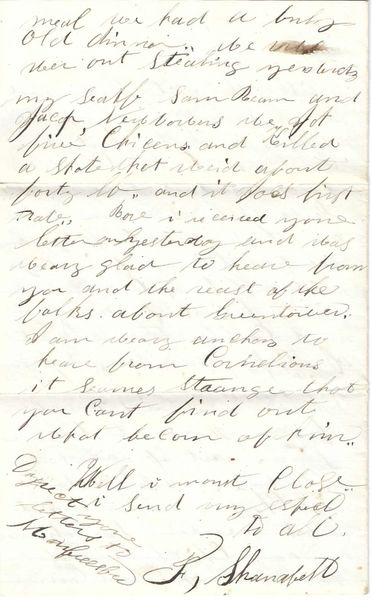 meal we had a bully
old dinner.. we
wer out Stealing yersterdy
my Sealfe Sam Beam and
Jacop we got
five Chicens and killed
a Shote that weid about
forty lb.. and it goes first
rate.. Bore i receved youre
letter on yesterday and was
weary glad to heare from
you and the reast of the
folks. about Greentower.
I am weary anchos to
heare from Cornelious
it Seames Staange that
you Cant find out
what becom of him..
Well i moust Close..
i Send my espect
to all.
Direct youre
letters to
F, Shanafelt